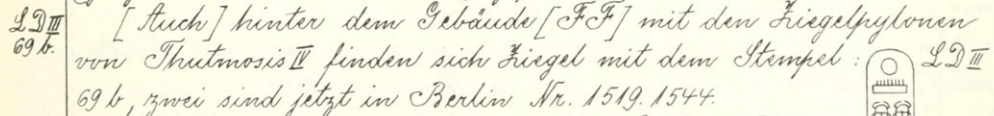 LD III
69 b.
[Auch] hinter dem Gebäude [FF] mit den Ziegelpylonen
von Thutmosis IV finden sich Ziegel mit dem Stempel : LD III
69 b, zwei sind jetzt in Berlin Nr. 1519. 1544.